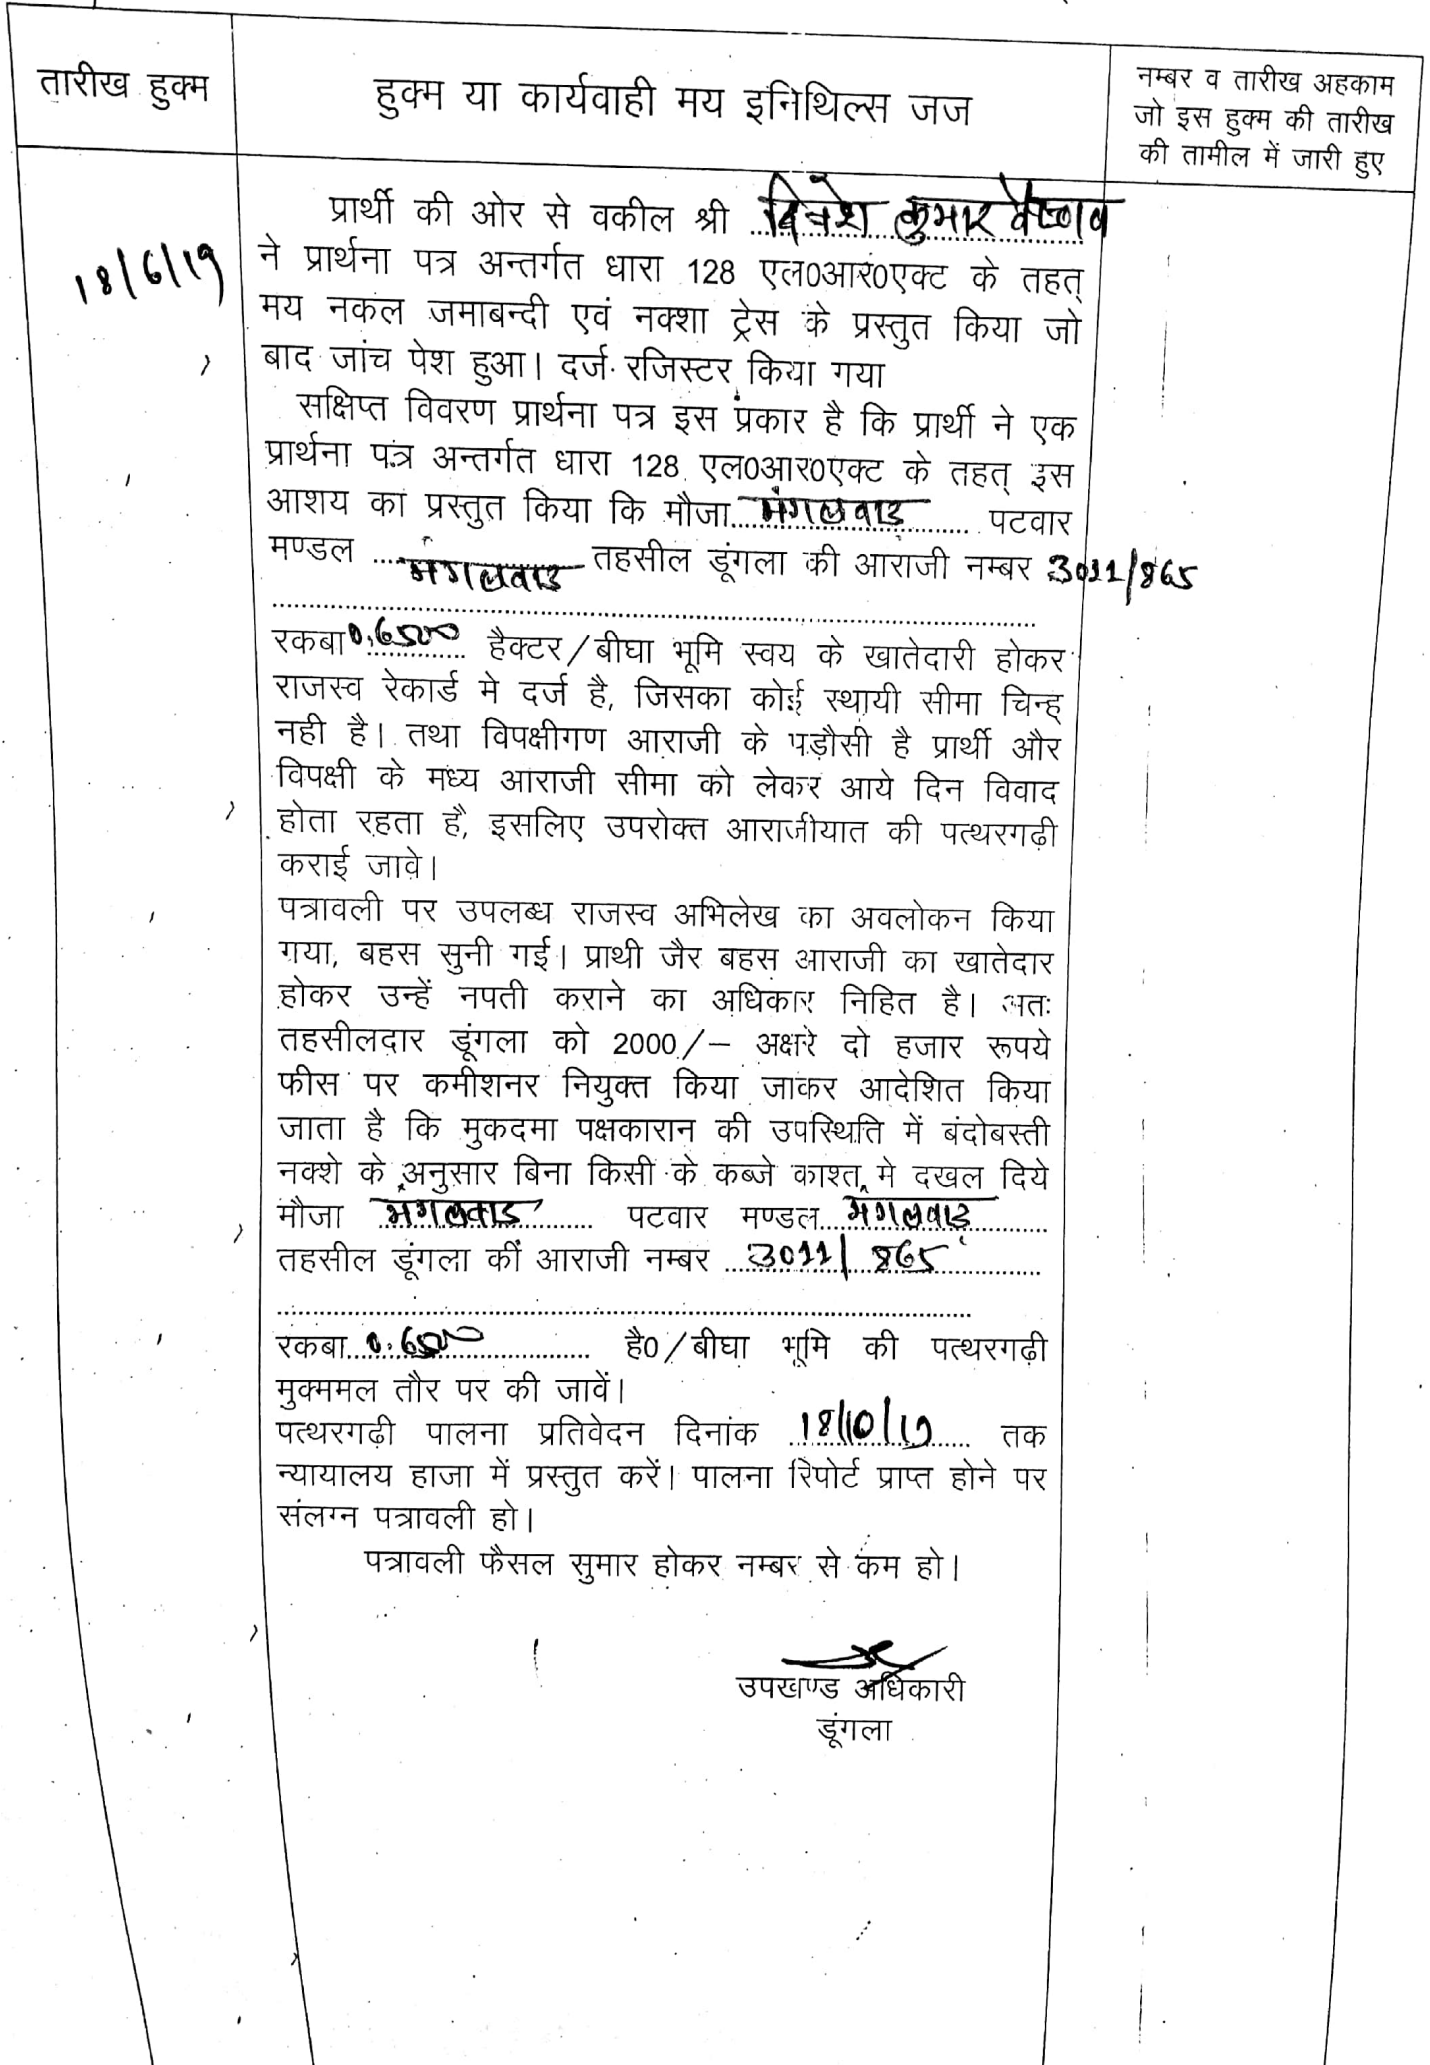 तारीख हुक्म
हुक्म या कार्यवाही मय इनिथिल्स जज
नम्बर व तारीख अहकाम
जो इस हुक्म की तारीख
की तामील में जारी हुए
18/6/19
प्रार्थी की ओर से वकील श्री दिनेश कुमार वैष्णव
ने प्रार्थना पत्र अन्तर्गत धारा 128 एल0आर0एक्ट के तहत्
मय नकल जमाबन्दी एवं नक्शा ट्रेस के प्रस्तुत किया जो
बाद जांच पेश हुआ। दर्ज रजिस्टर किया गया
सक्षिप्त विवरण प्रार्थना पत्र इस प्रकार है कि प्रार्थी ने एक
प्रार्थना पत्र अन्तर्गत धारा 128 एल0आर0एक्ट के तहत् इस
आशय का प्रस्तुत किया कि मौजा मंगलवाड पटवार
मण्डल मंगलवाड तहसील डूंगला की आराजी नम्बर 3011/865
रकबा 0.6500 हैक्टर/बीघा भूमि स्वय के खातेदारी होकर
राजस्व रेकार्ड मे दर्ज है, जिसका कोई स्थायी सीमा चिन्ह्
नही है। तथा विपक्षीगण आराजी के पड़ौसी है प्रार्थी और
विपक्षी के मध्य आराजी सीमा को लेकर आये दिन विवाद
होता रहता है, इसलिए उपरोक्त आराजीयात की पत्थरगढ़ी
कराई जावे।
पत्रावली पर उपलब्ध राजस्व अभिलेख का अवलोकन किया
गया, बहस सुनी गई। प्राथी जैर बहस आराजी का खातेदार
होकर उन्हें नपती कराने का अधिकार निहित है। अतः
तहसीलदार डूंगला को 2000/- अक्षरे दो हजार रूपये
फीस पर कमीशनर नियुक्त किया जाकर आदेशित किया
जाता है कि मुकदमा पक्षकारान की उपस्थिति में बंदोबस्ती
नक्शे के अनुसार बिना किसी के कब्जे काश्त मे दखल दिये
मौजा मंगलवाड पटवार मण्डल मंगलवाड
तहसील डूंगला कीं आराजी नम्बर 3011/865
रकबा 0.6500 है0/बीघा भूमि की पत्थरगढ़ी
मुक्ममल तौर पर की जावें।
पत्थरगढ़ी पालना प्रतिवेदन दिनांक 18/10/19 तक
न्यायालय हाजा में प्रस्तुत करें। पालना रिपोर्ट प्राप्त होने पर
संलग्न पत्रावली हो।
पत्रावली फैसल सुमार होकर नम्बर से कम हो।
उपखण्ड अधिकारी
डूंगला